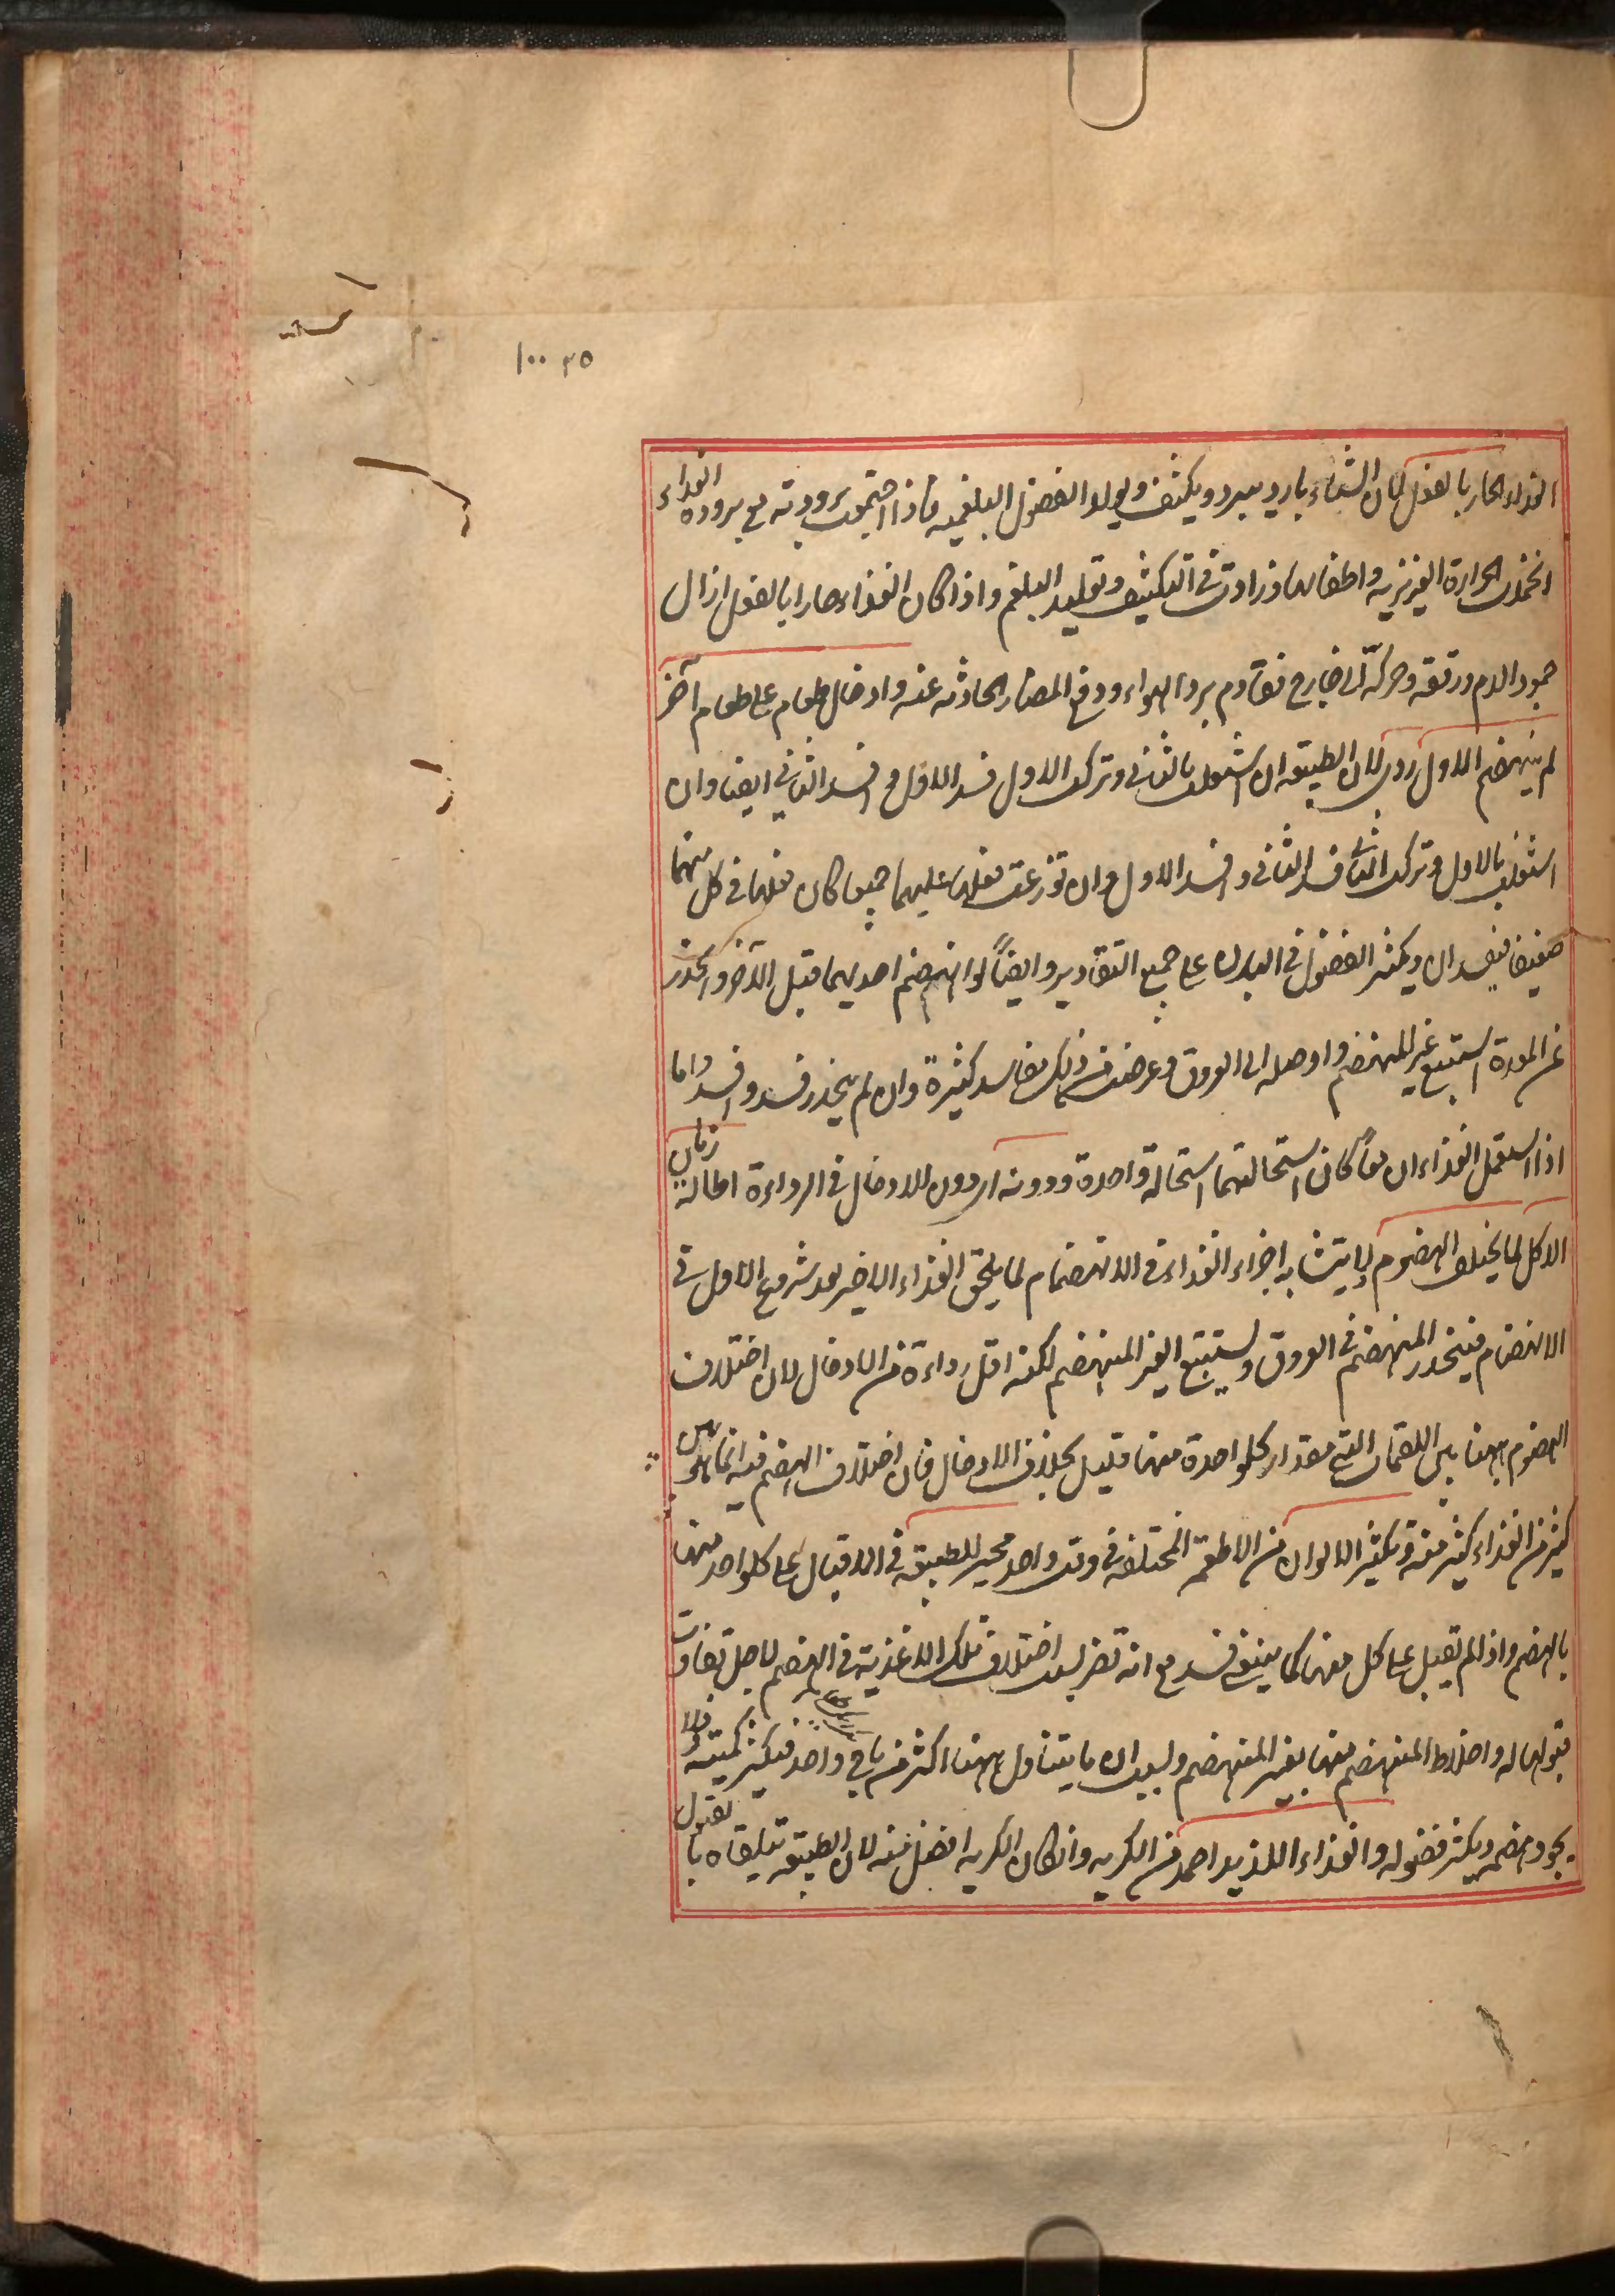 ١٠٠ ٢٥
الغذاء الحار بالفعل لان الشتاء بارد يبرد ويكثف ويولد الفضول البلغمية فاذا اجتمعت برودته مع برودة الغذاء
اخمدت الحرارة الغريزية واطفاتها وزادت في التكثيف وتوليد البلغم واذا كان الغذاء حارا بالفعل ازال
جمود الدم ورققه وحركه الى خارج فقاوم برد الهواء ودفع المضار الحادثة عنه وادخال طعام على طعام آخر
لم ينهضم الاول ردى لان الطبيعة ان اشتغلت بالثاني وتركت الاول فسد الاول وافسد الثاني ايضا وان
اشتغلت بالاول وتركت الثاني فسد الثاني وافسد الاول وان توزعت فعلها عليهما جميعا كان فعلها في كل منهما
ضعيفا فيفسدان ويكثر الفضول في البدن على جميع التقادير وايضاً لو انهضم احديهما قبل الآخر وانحدر
عن المعدة استتبع غير المنهضم واوصله الى العروق وعرض من ذلك مفاسد كثيرة وان لم ينحدر فسد وافسد واما
اذا استعمل الغذاءان معاً كان استحالتهما استحالة واحدة ودونه اى دون الادخال في الرداءة اطالة زمان
الاكل لما يختلف الهضوم لا يتشابه اجزاء الغذاء في الانهضام لما يلحق الغذاء الاخير بعد شروع الاول في
الانهضام فينحدر المنهضم في العروق ويستتبع الغير المنهضم لكنه اقل رداءة من الادخال لان اختلاف
الهضوم ههنا بين اللقمات التي مقدار كلواحدة منها قليل بخلاف الادخال فان اختلاف الهضم فيه انما هو بين
كثير من الغذاء كثير منه وتكثير الالوان من الاطعمة المختلفة في وقت واحد محير للطبيعة في الاقبال على كلواحد منها
بالهضم واذا لم تقبل على كل منها كما ينبغى فسد مع انه تضر بسبب اختلاف تلك الاغذية في الهضم لاجل تفاوت
قبولها له واختلاط المنهضم منها بغير المنهضم وبسبب ان ما يتناول ههنا اكثر من واحد فيكثر كميته فلا
يجود هضمه ويكثر فضوله والغذاء اللذيذ احمد من الكريه وان كان الكريه افضل منه لان الطبيعة تتلقاه بالقبول